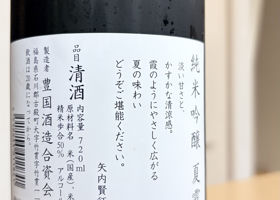 純米吟醸 夏
淡い甘さと、
かすかな清涼感。
霞のようにやさしく広がる
夏の味わい
どうぞご堪能ください。
矢内賢
品目 清酒
内容量720ml
原材料名 米(国産)、米
精米歩合50% アルコール
製造者
豊国酒造合資会
福島県石川郡古殿町大字竹貫字竹貫
飲酒は20歳になってから。